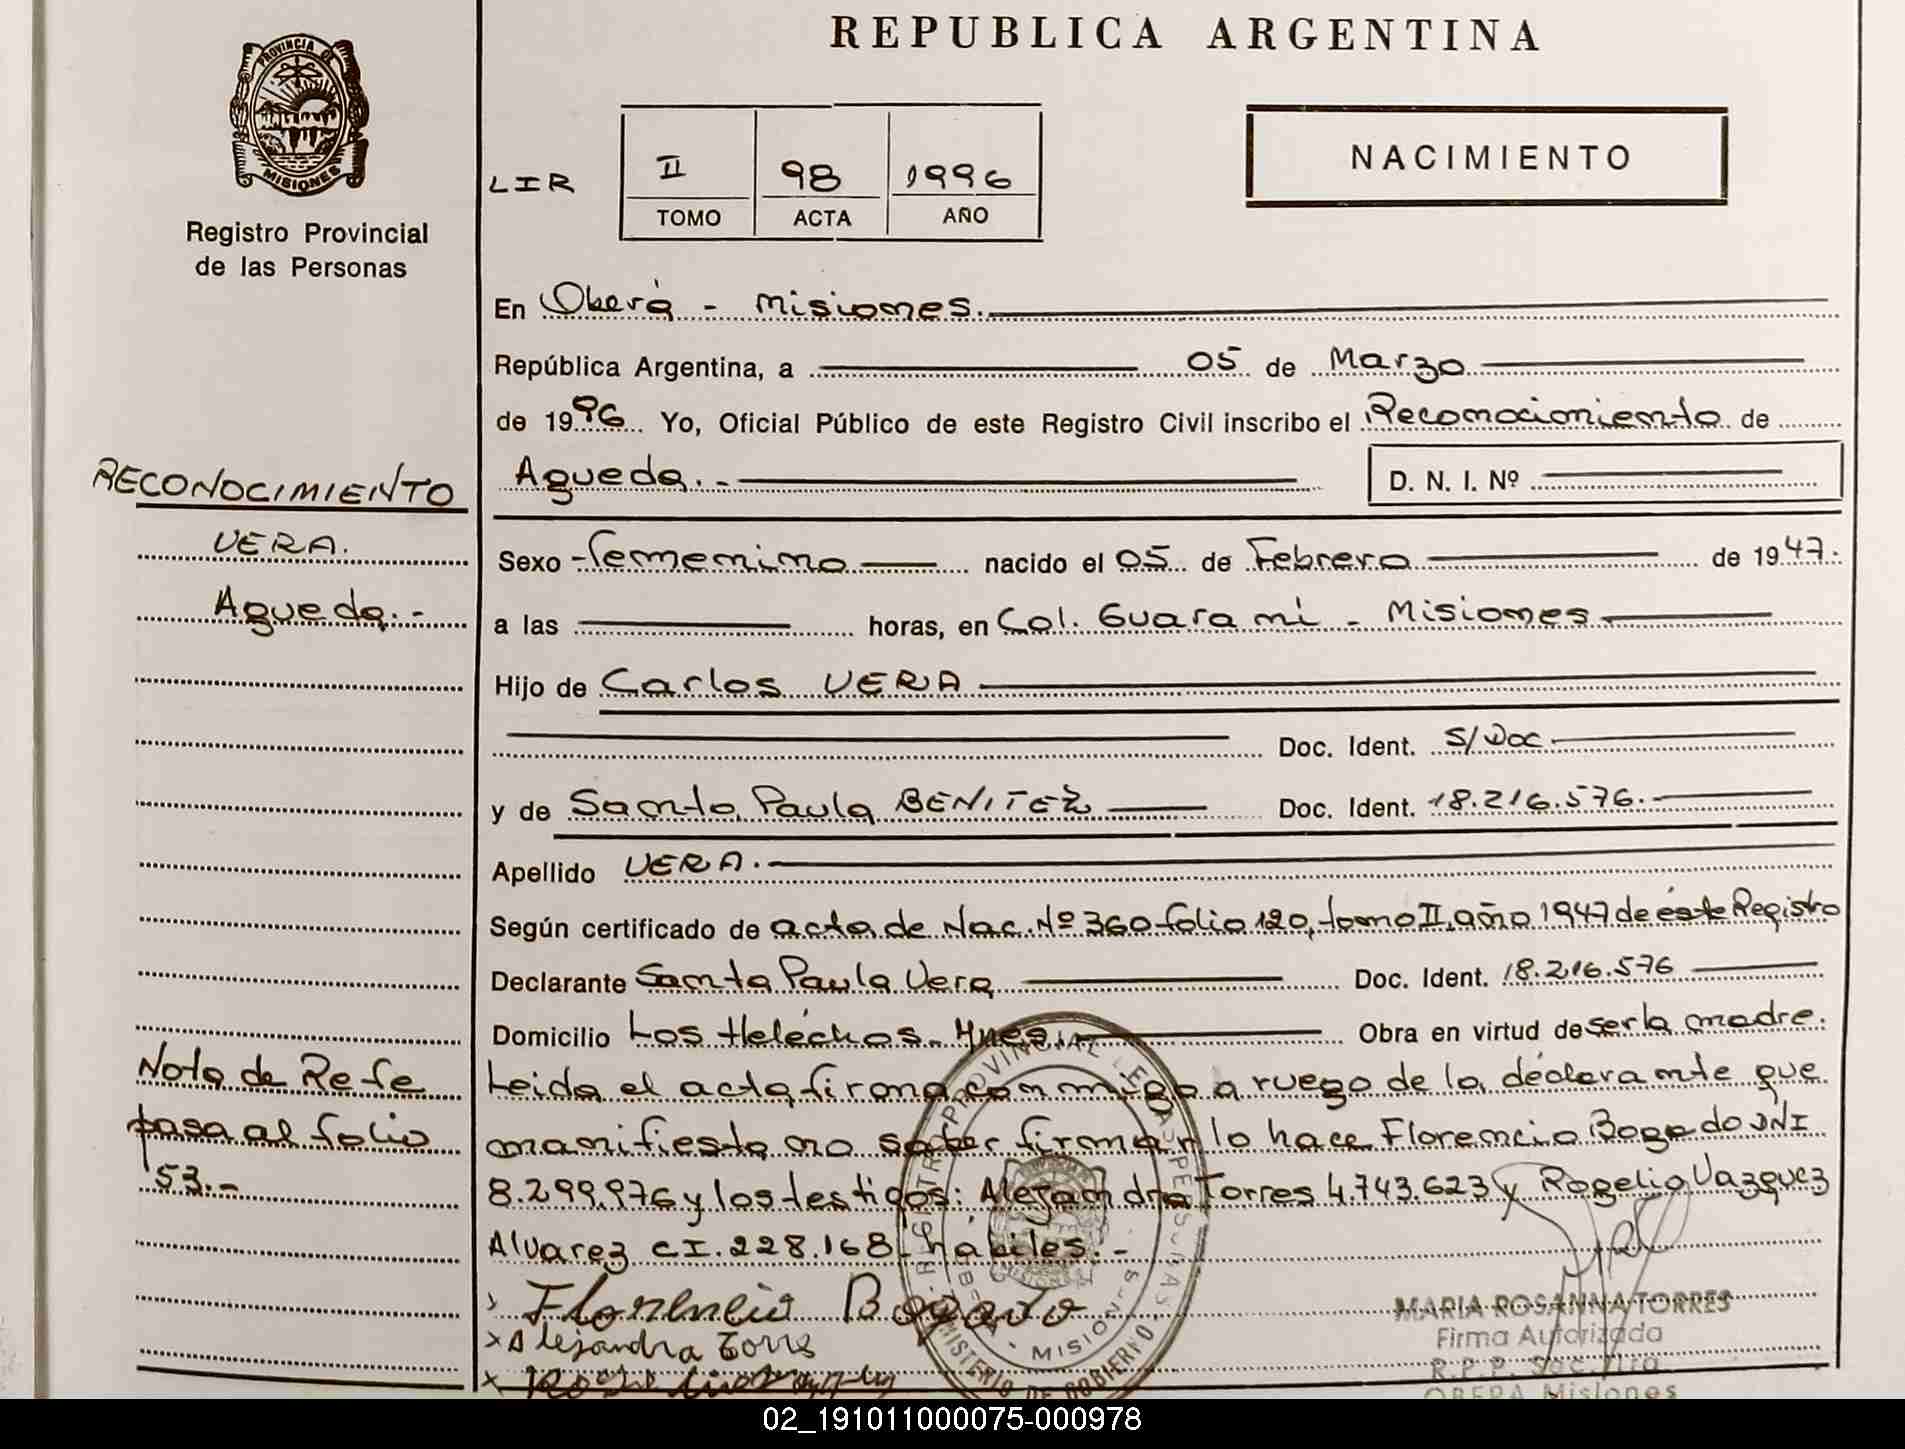 REPUBLICA ARGENTINA
PROVINCIA DE
MISIONES
Registro Provincial
de las Personas
NACIMIENTO
LIR II 98 1996
TOMO ACTA AÑO
En Oberá - Misiones.
República Argentina, a 05 de Marzo
de 1996 Yo, Oficial Público de este Registro Civil inscribo el Reconocimiento de
Agueda.- D. N. I. Nº
RECONOCIMIENTO
VERA.
Agueda.-
Sexo femenino nacido el 05 de Febrero de 1947.
a las horas, en Col. Guarani - Misiones
Hijo de Carlos VERA
Doc. Ident. S/Doc
y de Santa Paula BENITEZ Doc. Ident. 18.216.576.-
Apellido VERA.
Según certificado de acta de Nac. Nº 360 folio 120, tomo II, año 1947 de éste Registro
Declarante Santa Paula Vera Doc. Ident. 18.216.576
Domicilio Los Helechos. Mnes. Obra en virtud de ser la madre.
Nota de Refe
pasa al folio
53.-
Leida el acta firma conmigo a ruego de la declarante que
manifiesta no saber firmar lo hace Florencio Bogado DNI
8.299.976 y los testigos: Alejandra Torres 4.743.623 y Rogelio Vazquez
Alvarez CI. 228.168 - hábiles.-
Florencio Bogado
x Alejandra Torres
x
REGISTRO PROVINCIAL DE LAS PERSONAS
MINISTERIO DE GOBIERNO
MARIA ROSANNA TORRES
Firma Autorizada
R.P.P. Sec. 1ra
OBERA Misiones
02_191011000075-000978